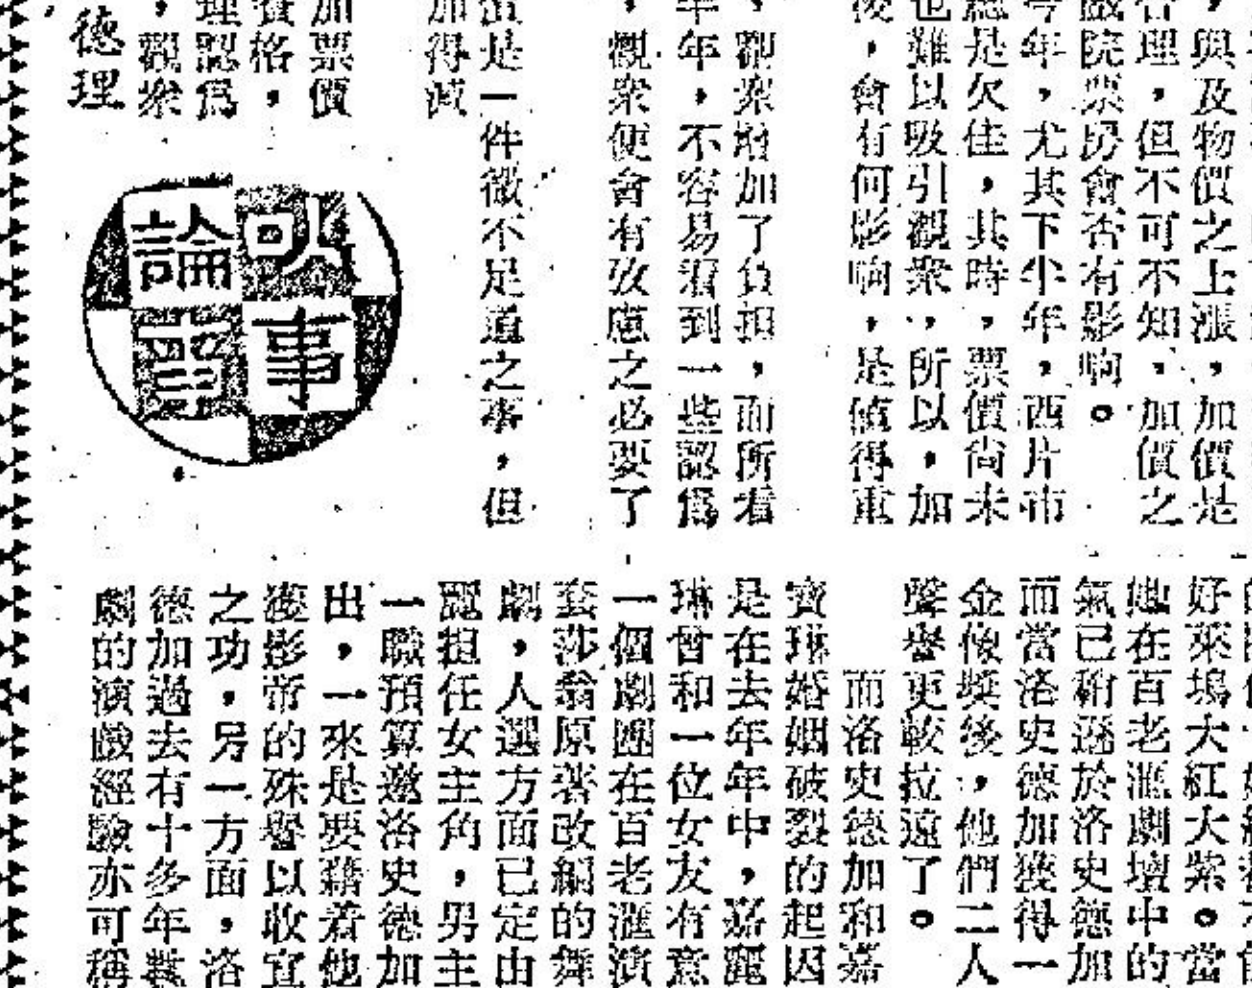 ，與及物價之上漲，加價是
合理，但不可不知，加價之
戲院票房會否有影响。
今年，尤其下半年，西片市
總是欠佳，其時，票價尚未
也難以吸引觀衆，所以，加
後，會有何影响，是值得重
，觀衆增加了負担，而所看
年年，不容易看到一些認爲
，觀衆便會有攷慮之必要了
是一件微不足道之事，但
加得減
加票價
資格，
理認爲
，觀衆
德理
影事
論霏
好萊塢大紅大紫。當
她在百老滙劇壇中的
氣已稍遜於洛史德加
而當洛史德加獲得一
金像獎後，他們二人
聲譽更較拉遠了。
而洛史德加和嘉
寶琳婚姻破裂的起因
是在去年年中，嘉麗
琳曾和一位女友有意
一個劇團在百老滙演
套莎翁原著改編的舞
劇，人選方面已定由
麗担任女主角，男主
一職預算邀洛史德加
出，一來是要藉着他
獲影帝的殊譽以收宣
之功，另一方面，洛
德加過去有十多年舞
劇的演戲經驗亦可稱